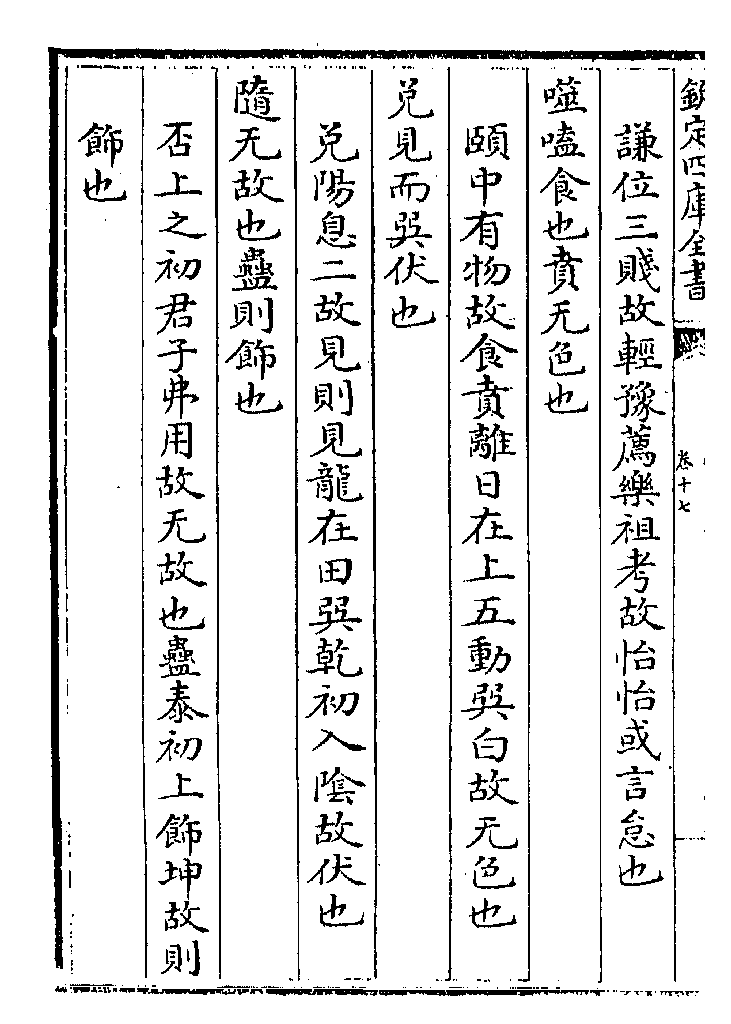 欽定四庫全書
卷十七
謙位三賤故輕豫薦樂祖考故怡怡或言怠也
噬嗑食也賁无色也
頤中有物故食賁離日在上五動巽白故无色也
兌見而巽伏也
兌陽息二故見則見龍在田巽乾初入陰故伏也
隨无故也蠱則飾也
否上之初君子弗用故无故也蠱泰初上飾坤故則
飾也